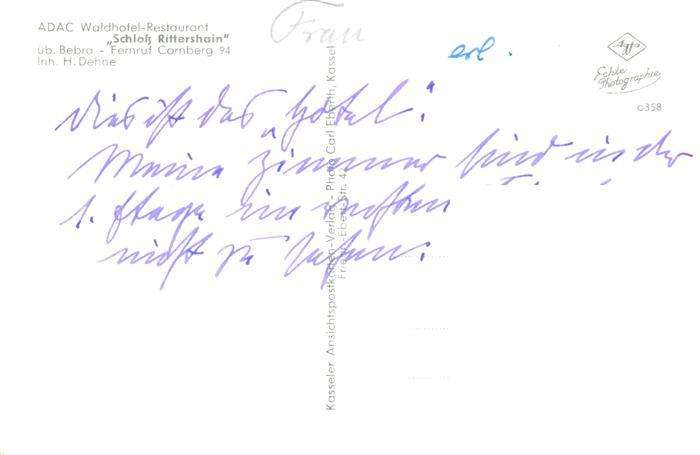 ADAC Waldhotel-Restaurant
„Schloß Rittershain"
üb. Bebra - Fernruf Cornberg 94
Inh. H. Dehne
Frau
erl.
Agfa
Echte
Photographie
o358
Dies ist das „Hotel".
Meine Zimmer sind in der
1. Etage im
nicht zu sehen.
Kasseler Ansichtspostkarten-Verlag - Photo Carl Eberth, Kassel
Friedr.-Ebert-Str.